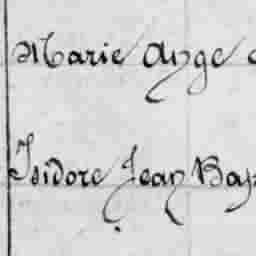 Marie Ange
Isidore Jean Bap